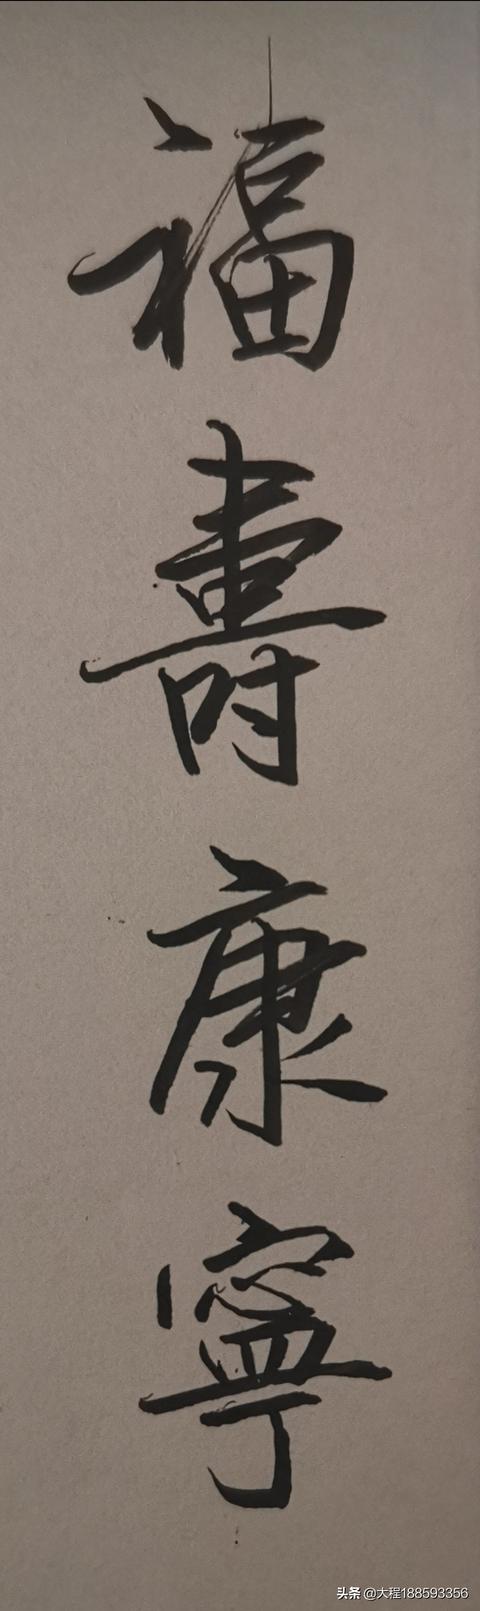 福壽康寧
头条 @大程188593356